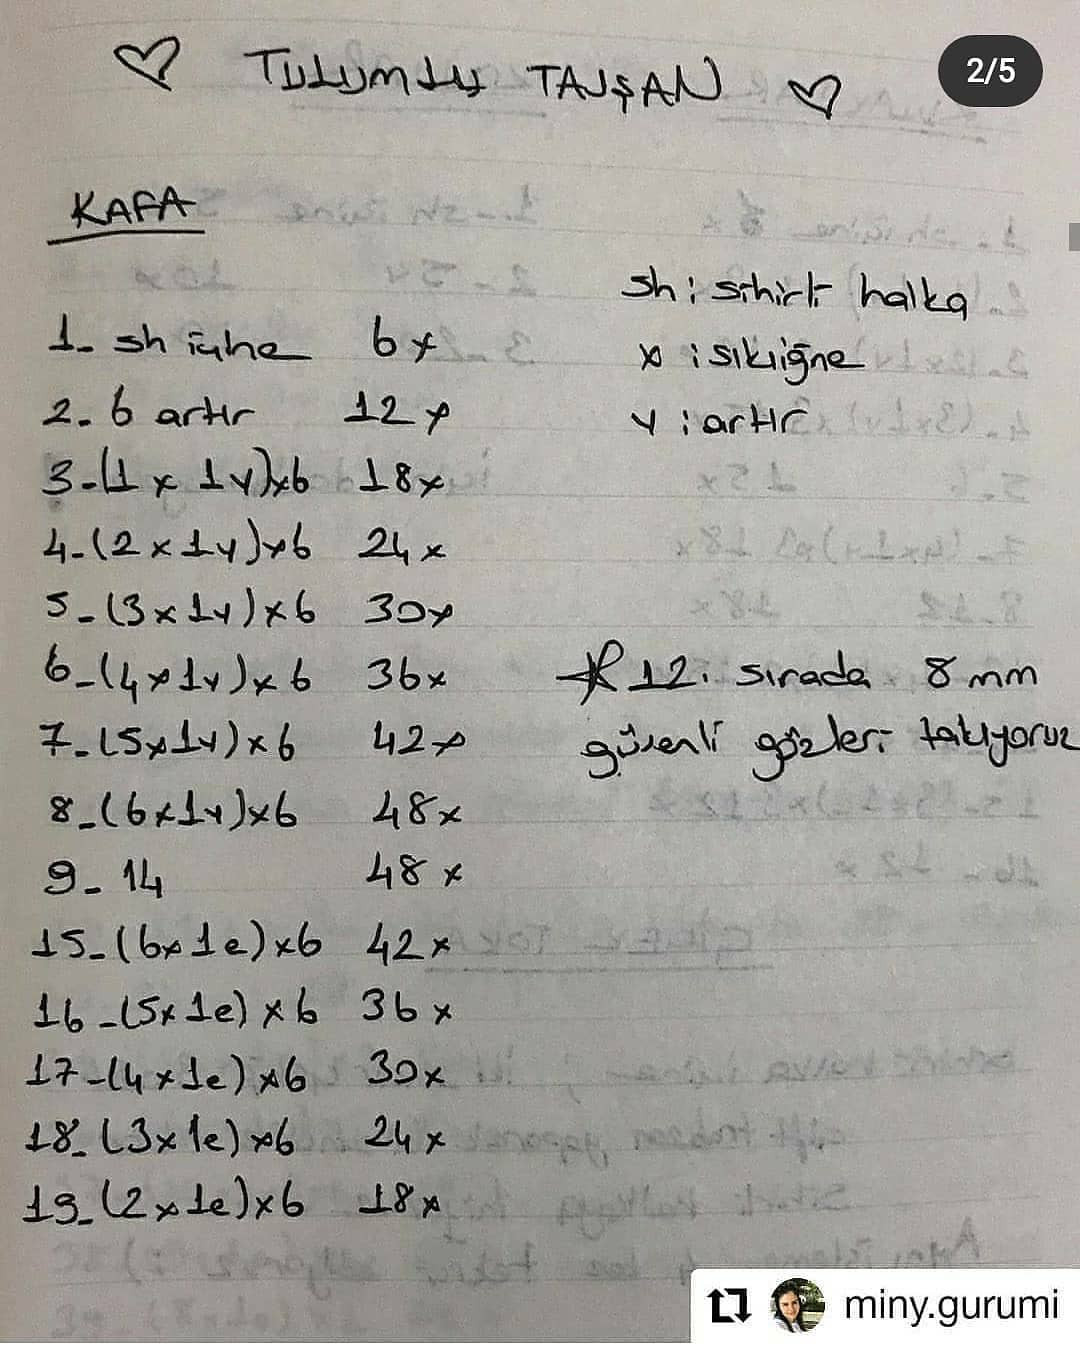 ♡ TULUMLU TAVŞAN ♡
2/5
KAFA
sh : sihirli halka
x : sıkiğne
v : artır
1- sh içine 6x
2- 6 artır 12x
3-(1x 1v)x6 18x
4-(2x1v)x6 24x
5-(3x1v)x6 30x
6-(4x1v)x6 36x
7-(5x1v)x6 42x
8-(6x1v)x6 48x
9-14 48x
15-(6x1e)x6 42x
16-(5x1e)x6 36x
17-(4x1e)x6 30x
18-(3x1e)x6 24x
19-(2x1e)x6 18x
* 12. sırada 8 mm
güvenli gözleri takıyoruz
miny.gurumi